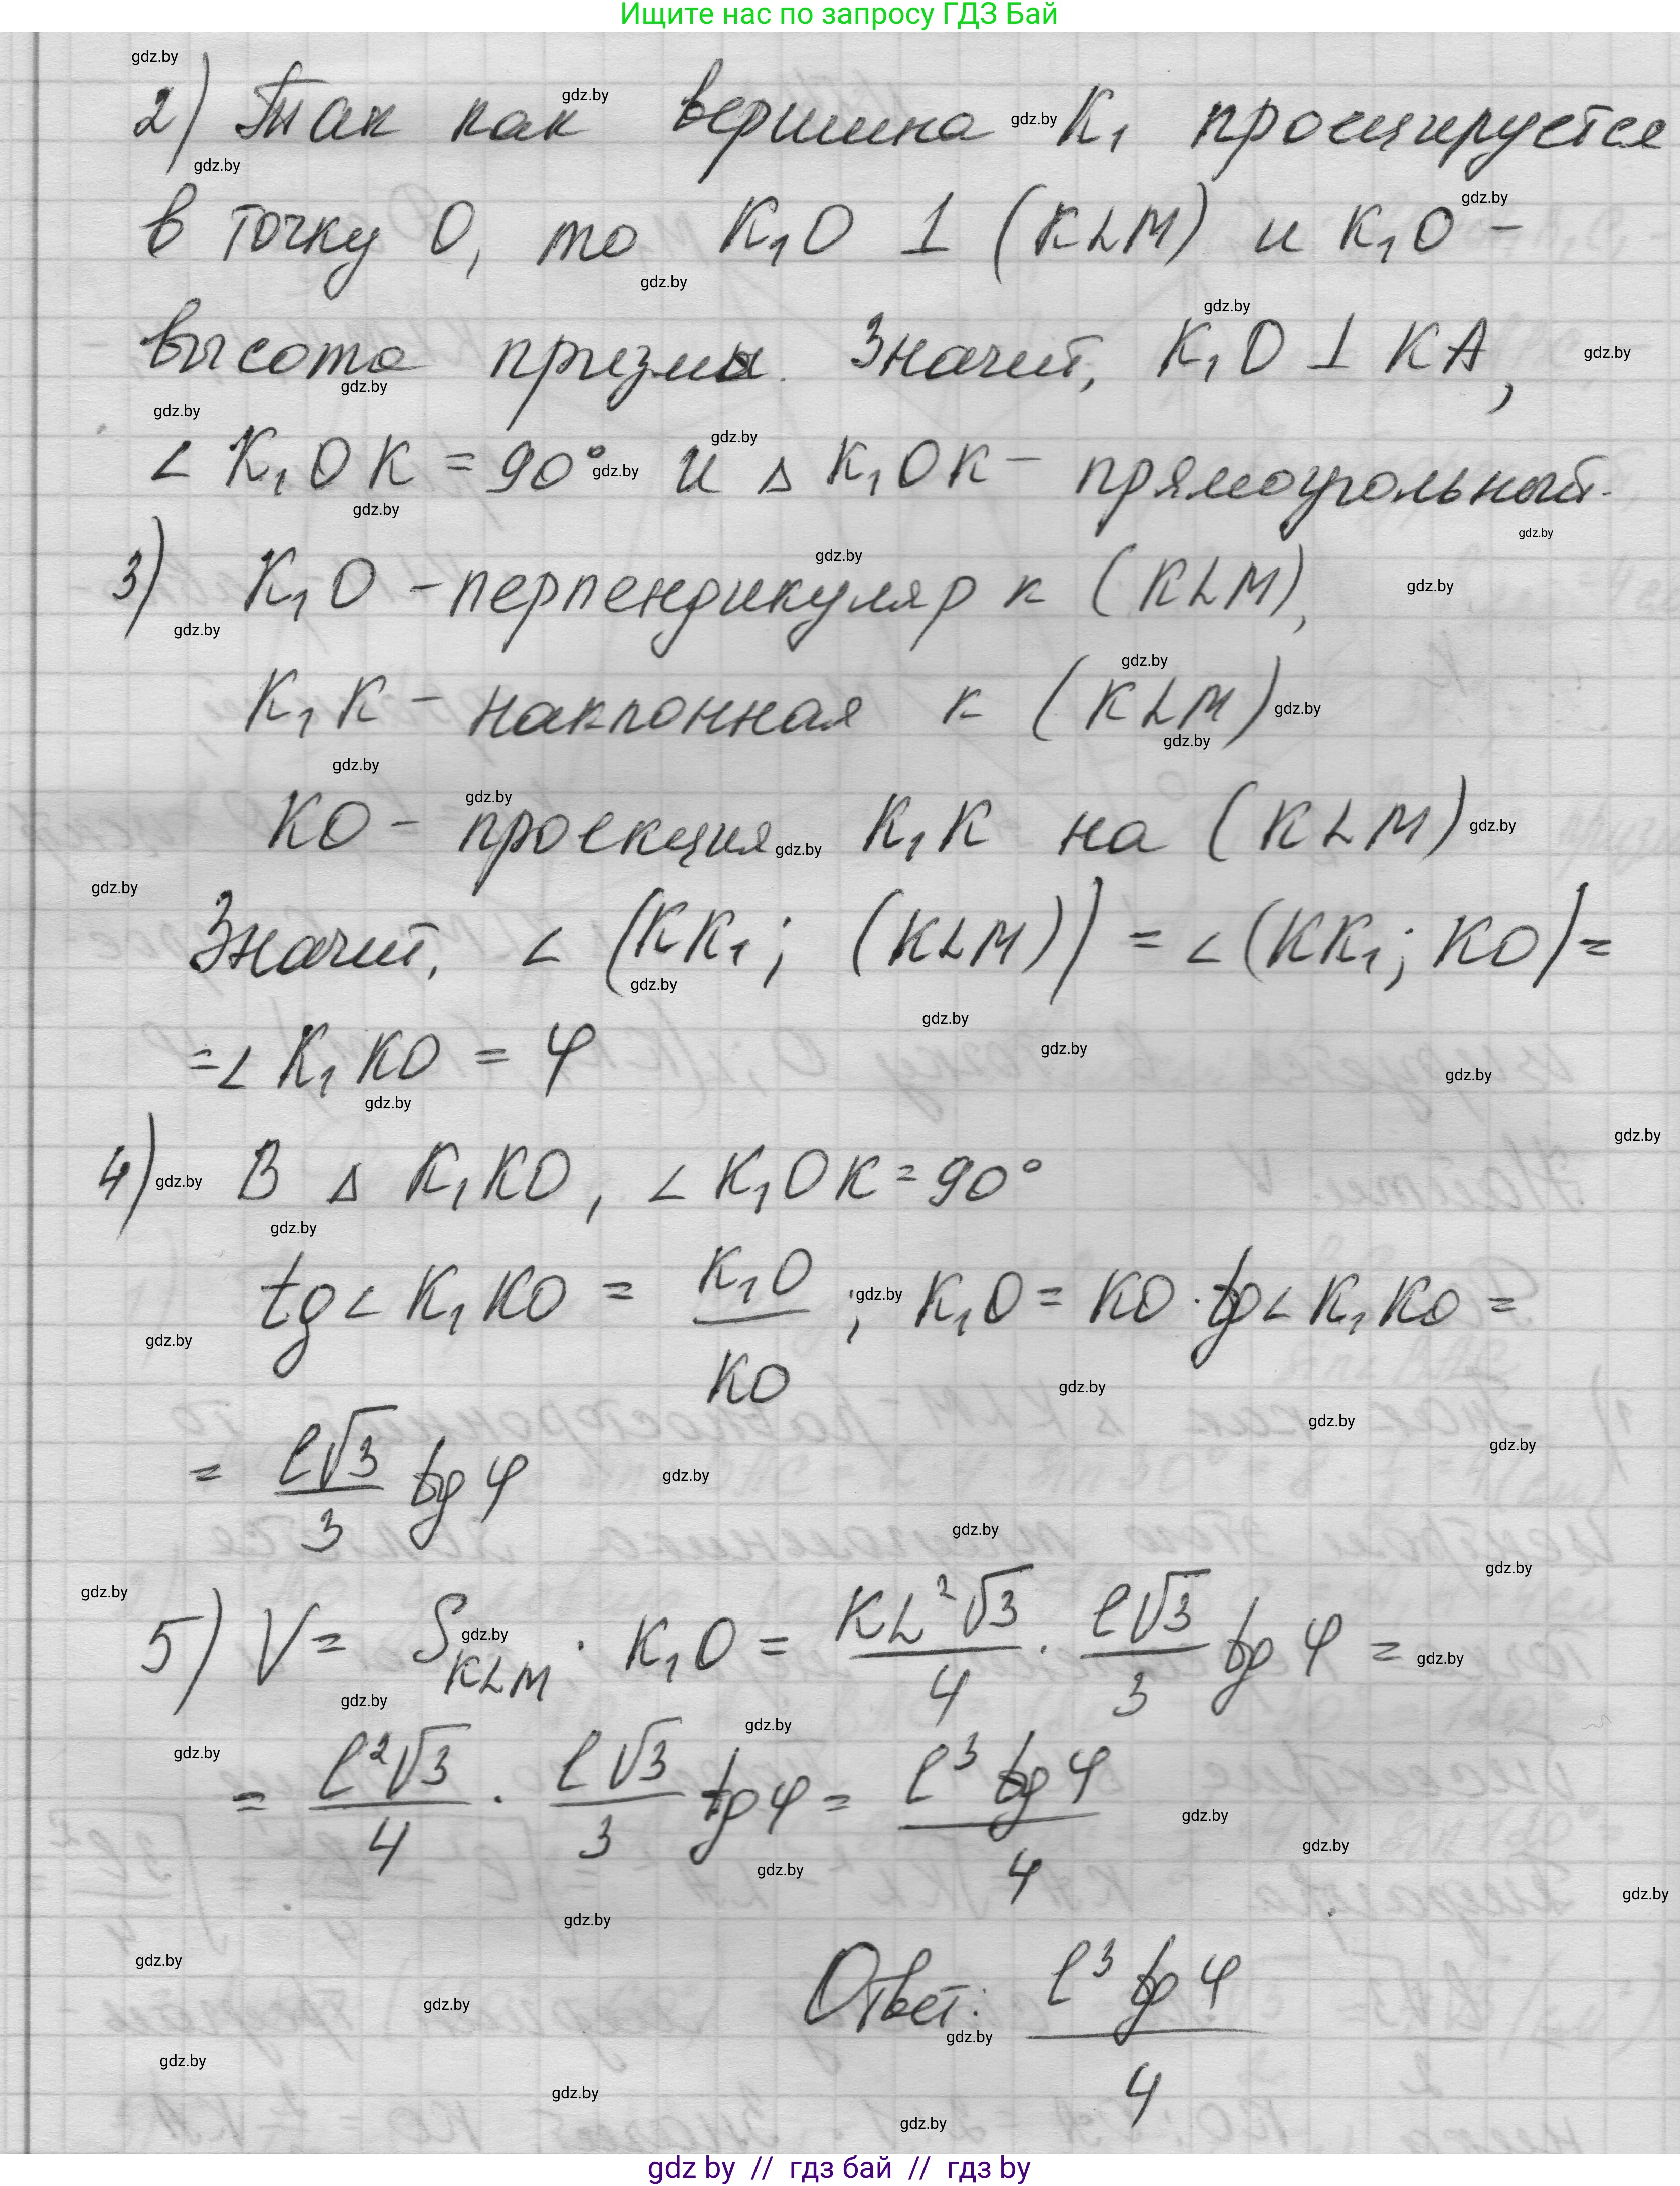 Ищите нас по запросу ГДЗ Бай
2) Так как вершина K₁ проецируется
в точку O, то K₁O ⊥ (KLM) и K₁O –
высота призмы. Значит, K₁O ⊥ KA,
∠ K₁OK = 90° и △ K₁OK – прямоугольный.
3) K₁O – перпендикуляр к (KLM),
K₁K – наклонная к (KLM)
KO – проекция K₁K на (KLM)
Значит, ∠ (KK₁; (KLM)) = ∠(KK₁; KO) =
= ∠ K₁KO = φ
4) В △ K₁KO, ∠ K₁OK = 90°
tg∠ K₁KO = K₁O/KO ; K₁O = KO · tg∠ K₁KO =
= l√3/3 tg φ
5) V = S_KLM · K₁O = KL²√3/4 · l√3/3 tg φ =
= l²√3/4 · l√3/3 tg φ = l³ tg φ/4
Ответ: l³ tg φ/4
gdz by // гдз бай // гдз by